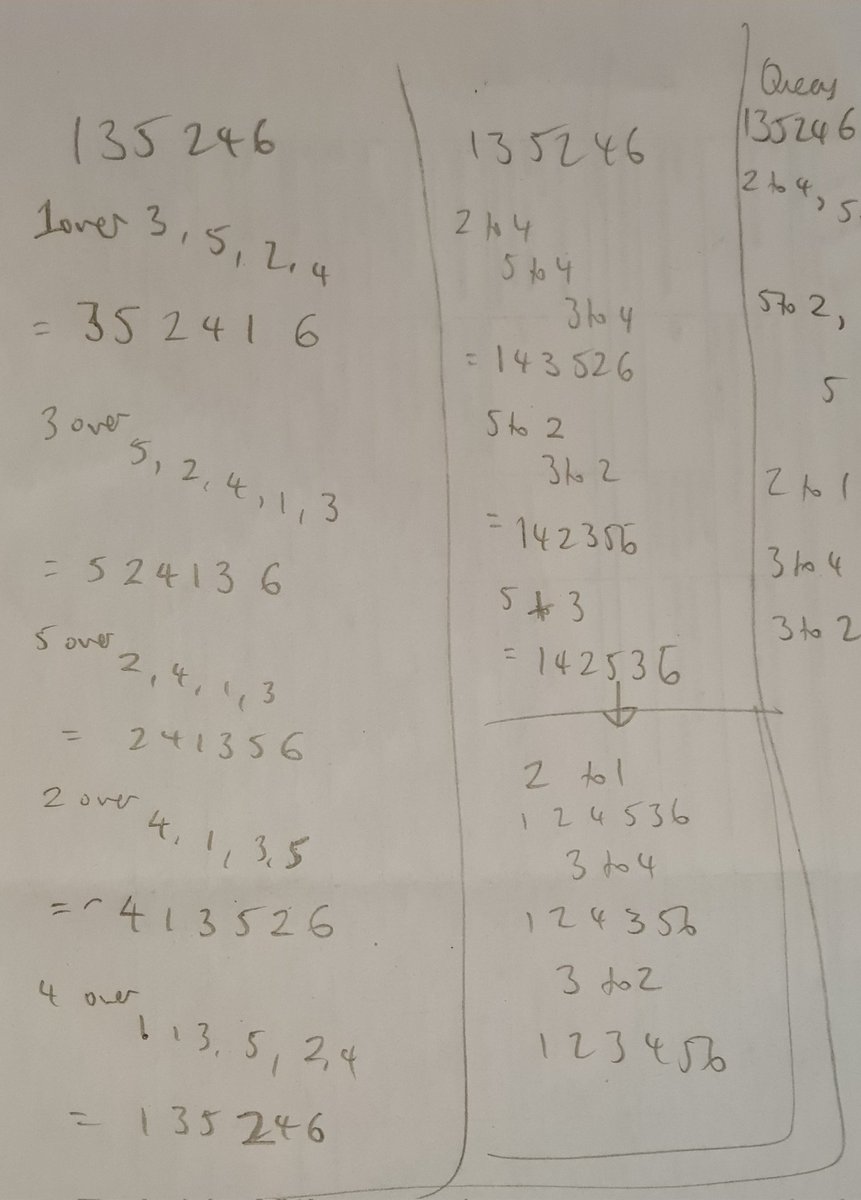 135246
1over 3, 5, 2, 4
= 352416
3 over 5, 2, 4, 1, 3
= 524136
5 over 2, 4, 1, 3
= 241356
2 over 4, 1, 3, 5
= 413526
4 over 1, 3, 5, 2, 4
= 135246
135246
2 to 4
5 to 4
3 to 4
= 143526
5 to 2
3 to 2
= 142356
5 to 3
= 142536
2 to 1
124536
3 to 4
124356
3 to 2
123456
135246
2 to 4, 5
5 to 2,
5
2 to 1
3 to 4
3 to 2